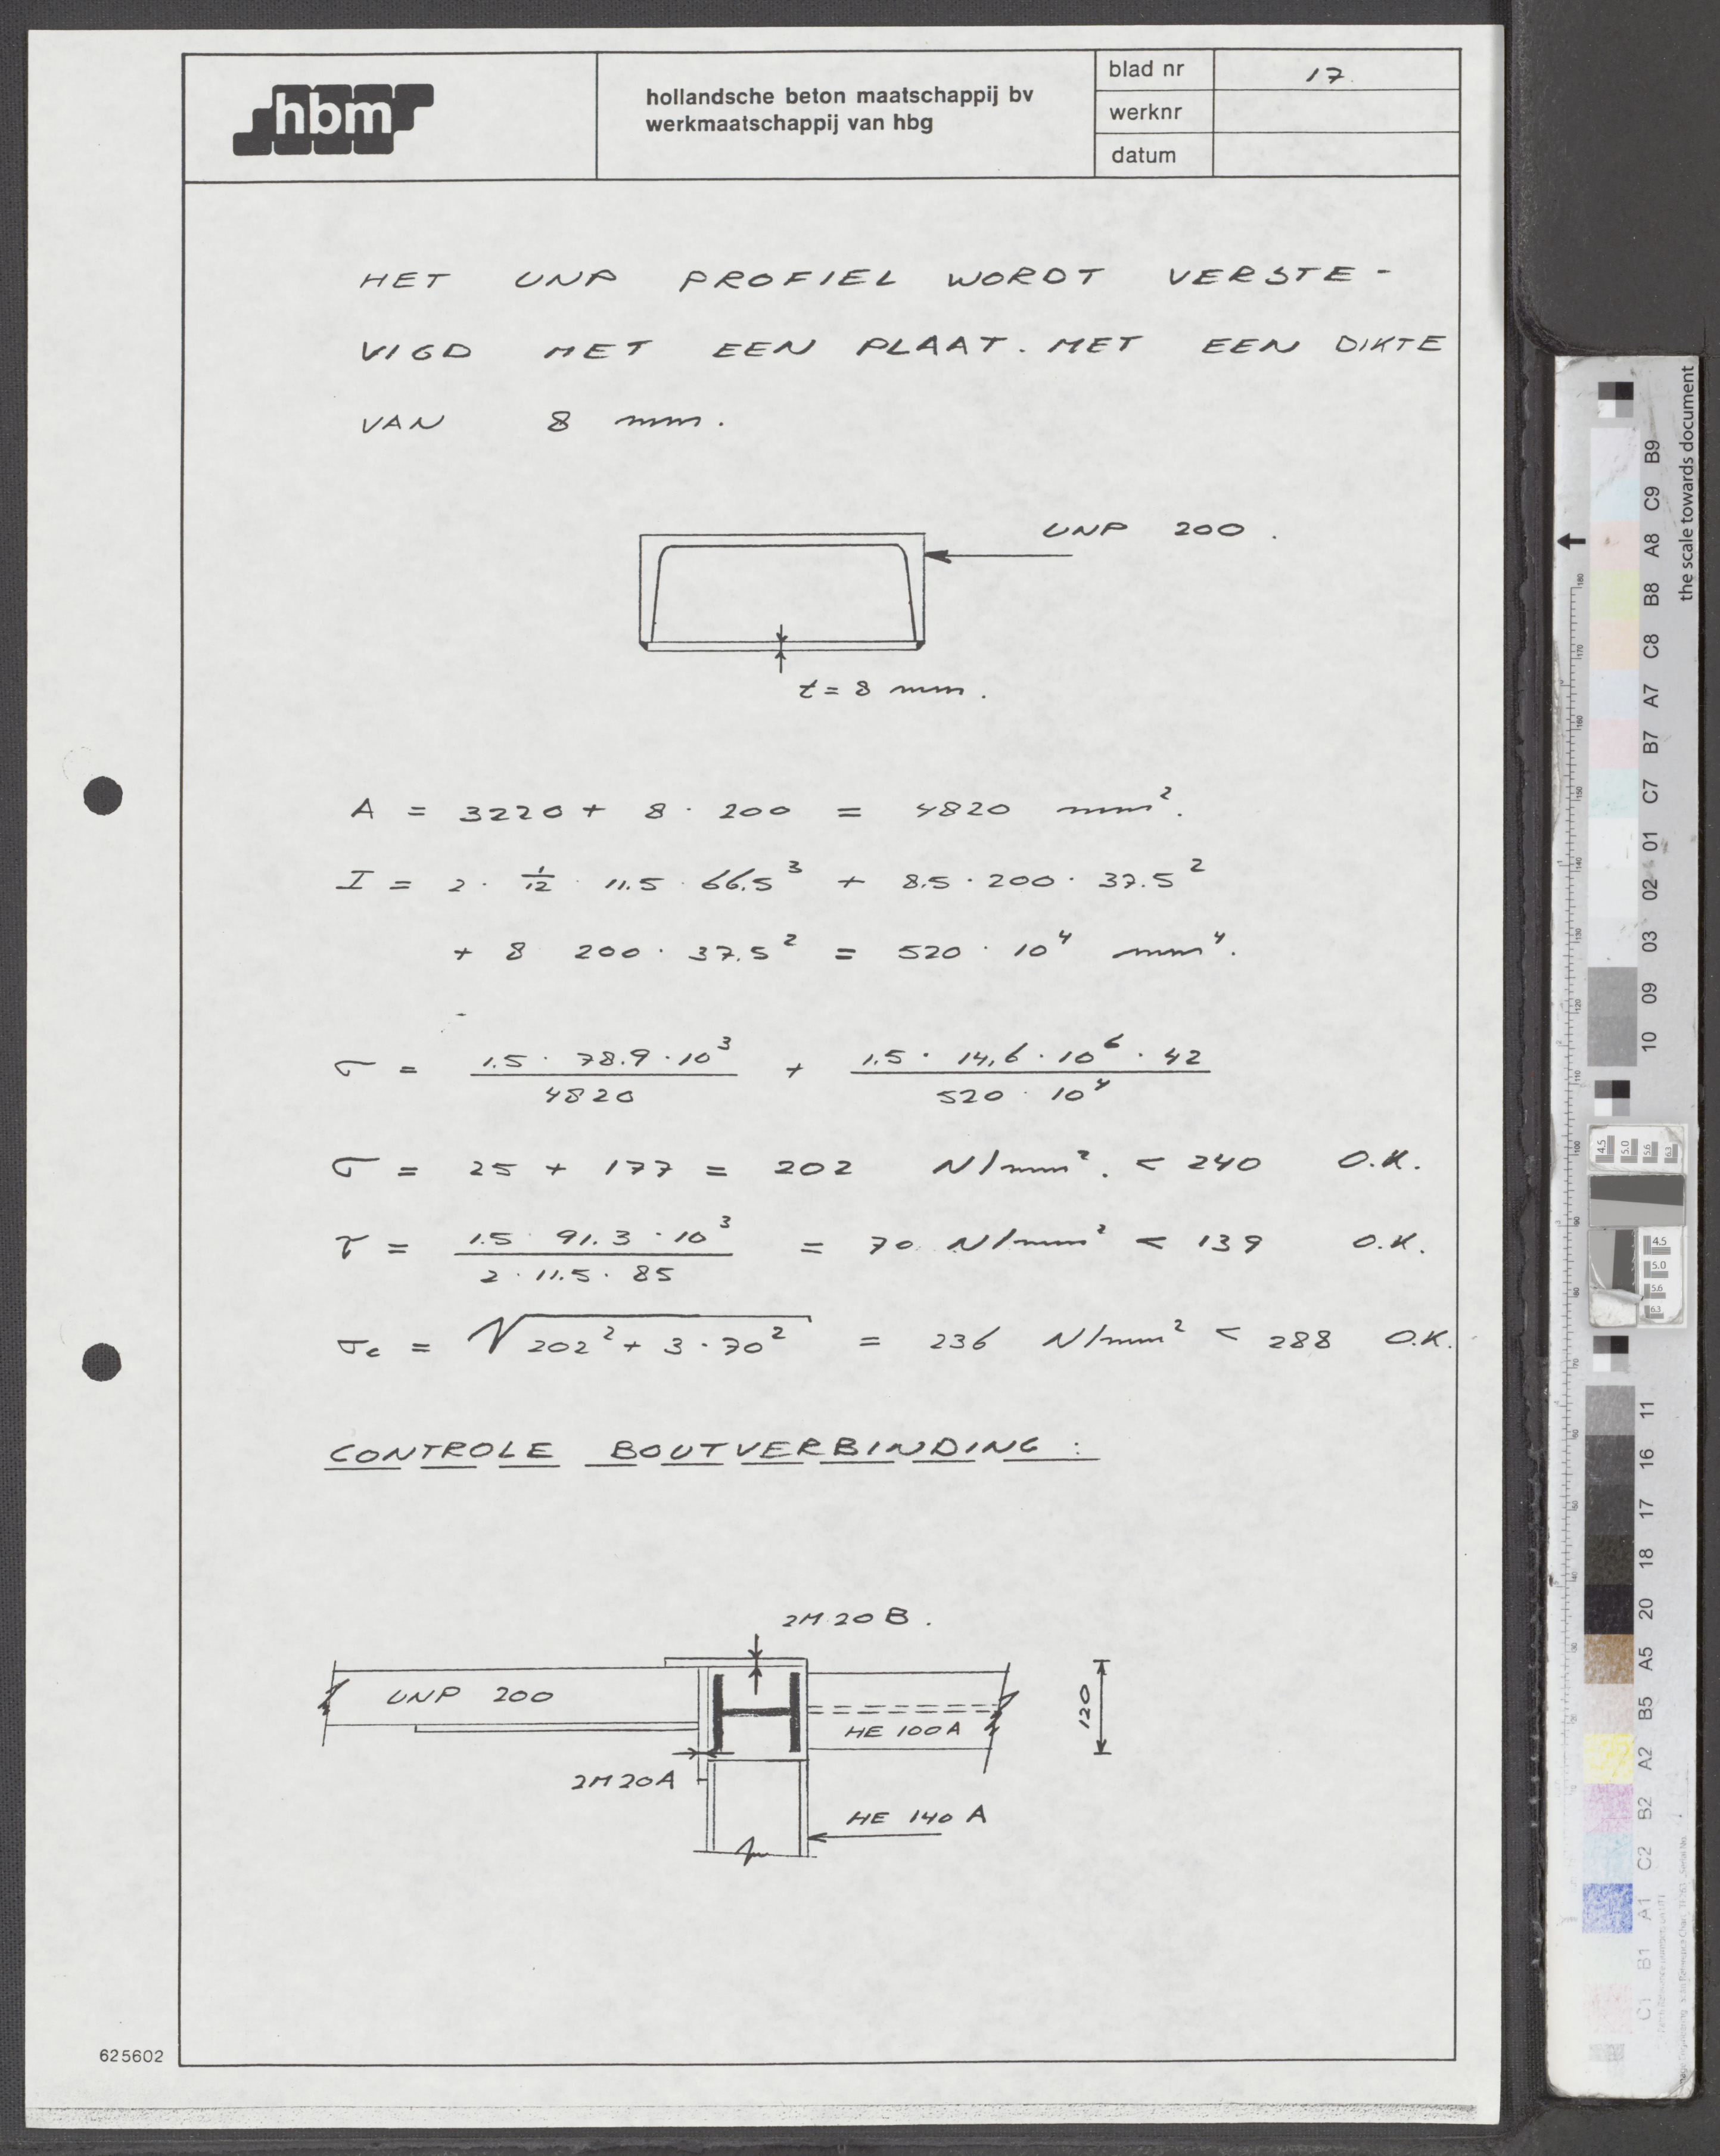 hbm
hollandsche beton maatschappij bv
werkmaatschappij van hbg
blad nr 17.
werknr
datum
HET UNP PROFIEL WORDT VERSTE-
VIGD MET EEN PLAAT. MET EEN DIKTE
VAN 8 mm.
UNP 200.
t = 8 mm.
A = 3220 + 8 · 200 = 4820 mm².
I = 2 · 1/12 · 11.5 · 66.5³ + 8.5 · 200 · 37.5²
+ 8 200 · 37.5² = 520 · 10⁴ mm⁴.
σ = 1.5 · 78.9 · 10³ / 4820 + 1.5 · 14,6 · 10⁶ · 42 / 520 · 10⁴
σ = 25 + 177 = 202 N/mm². < 240 O.K.
τ = 1.5 · 91.3 · 10³ / 2 · 11.5 · 85 = 70 N/mm² < 139 O.K.
σc = √202² + 3 · 70² = 236 N/mm² < 288 O.K.
CONTROLE BOUTVERBINDING :
2M20B.
UNP 200
HE 100A
120
2M20A
HE 140 A
625602
the scale towards document
B9
C9
A8
B8
C8
A7
B7
C7
01
02
03
09
10
11
16
17
18
20
A5
B5
A2
B2
C2
A1
B1
C1
180
170
160
150
140
130
120
110
100
90
80
70
60
50
40
30
4.5
5.0
5.6
6.3
4.5
5.0
5.6
6.3